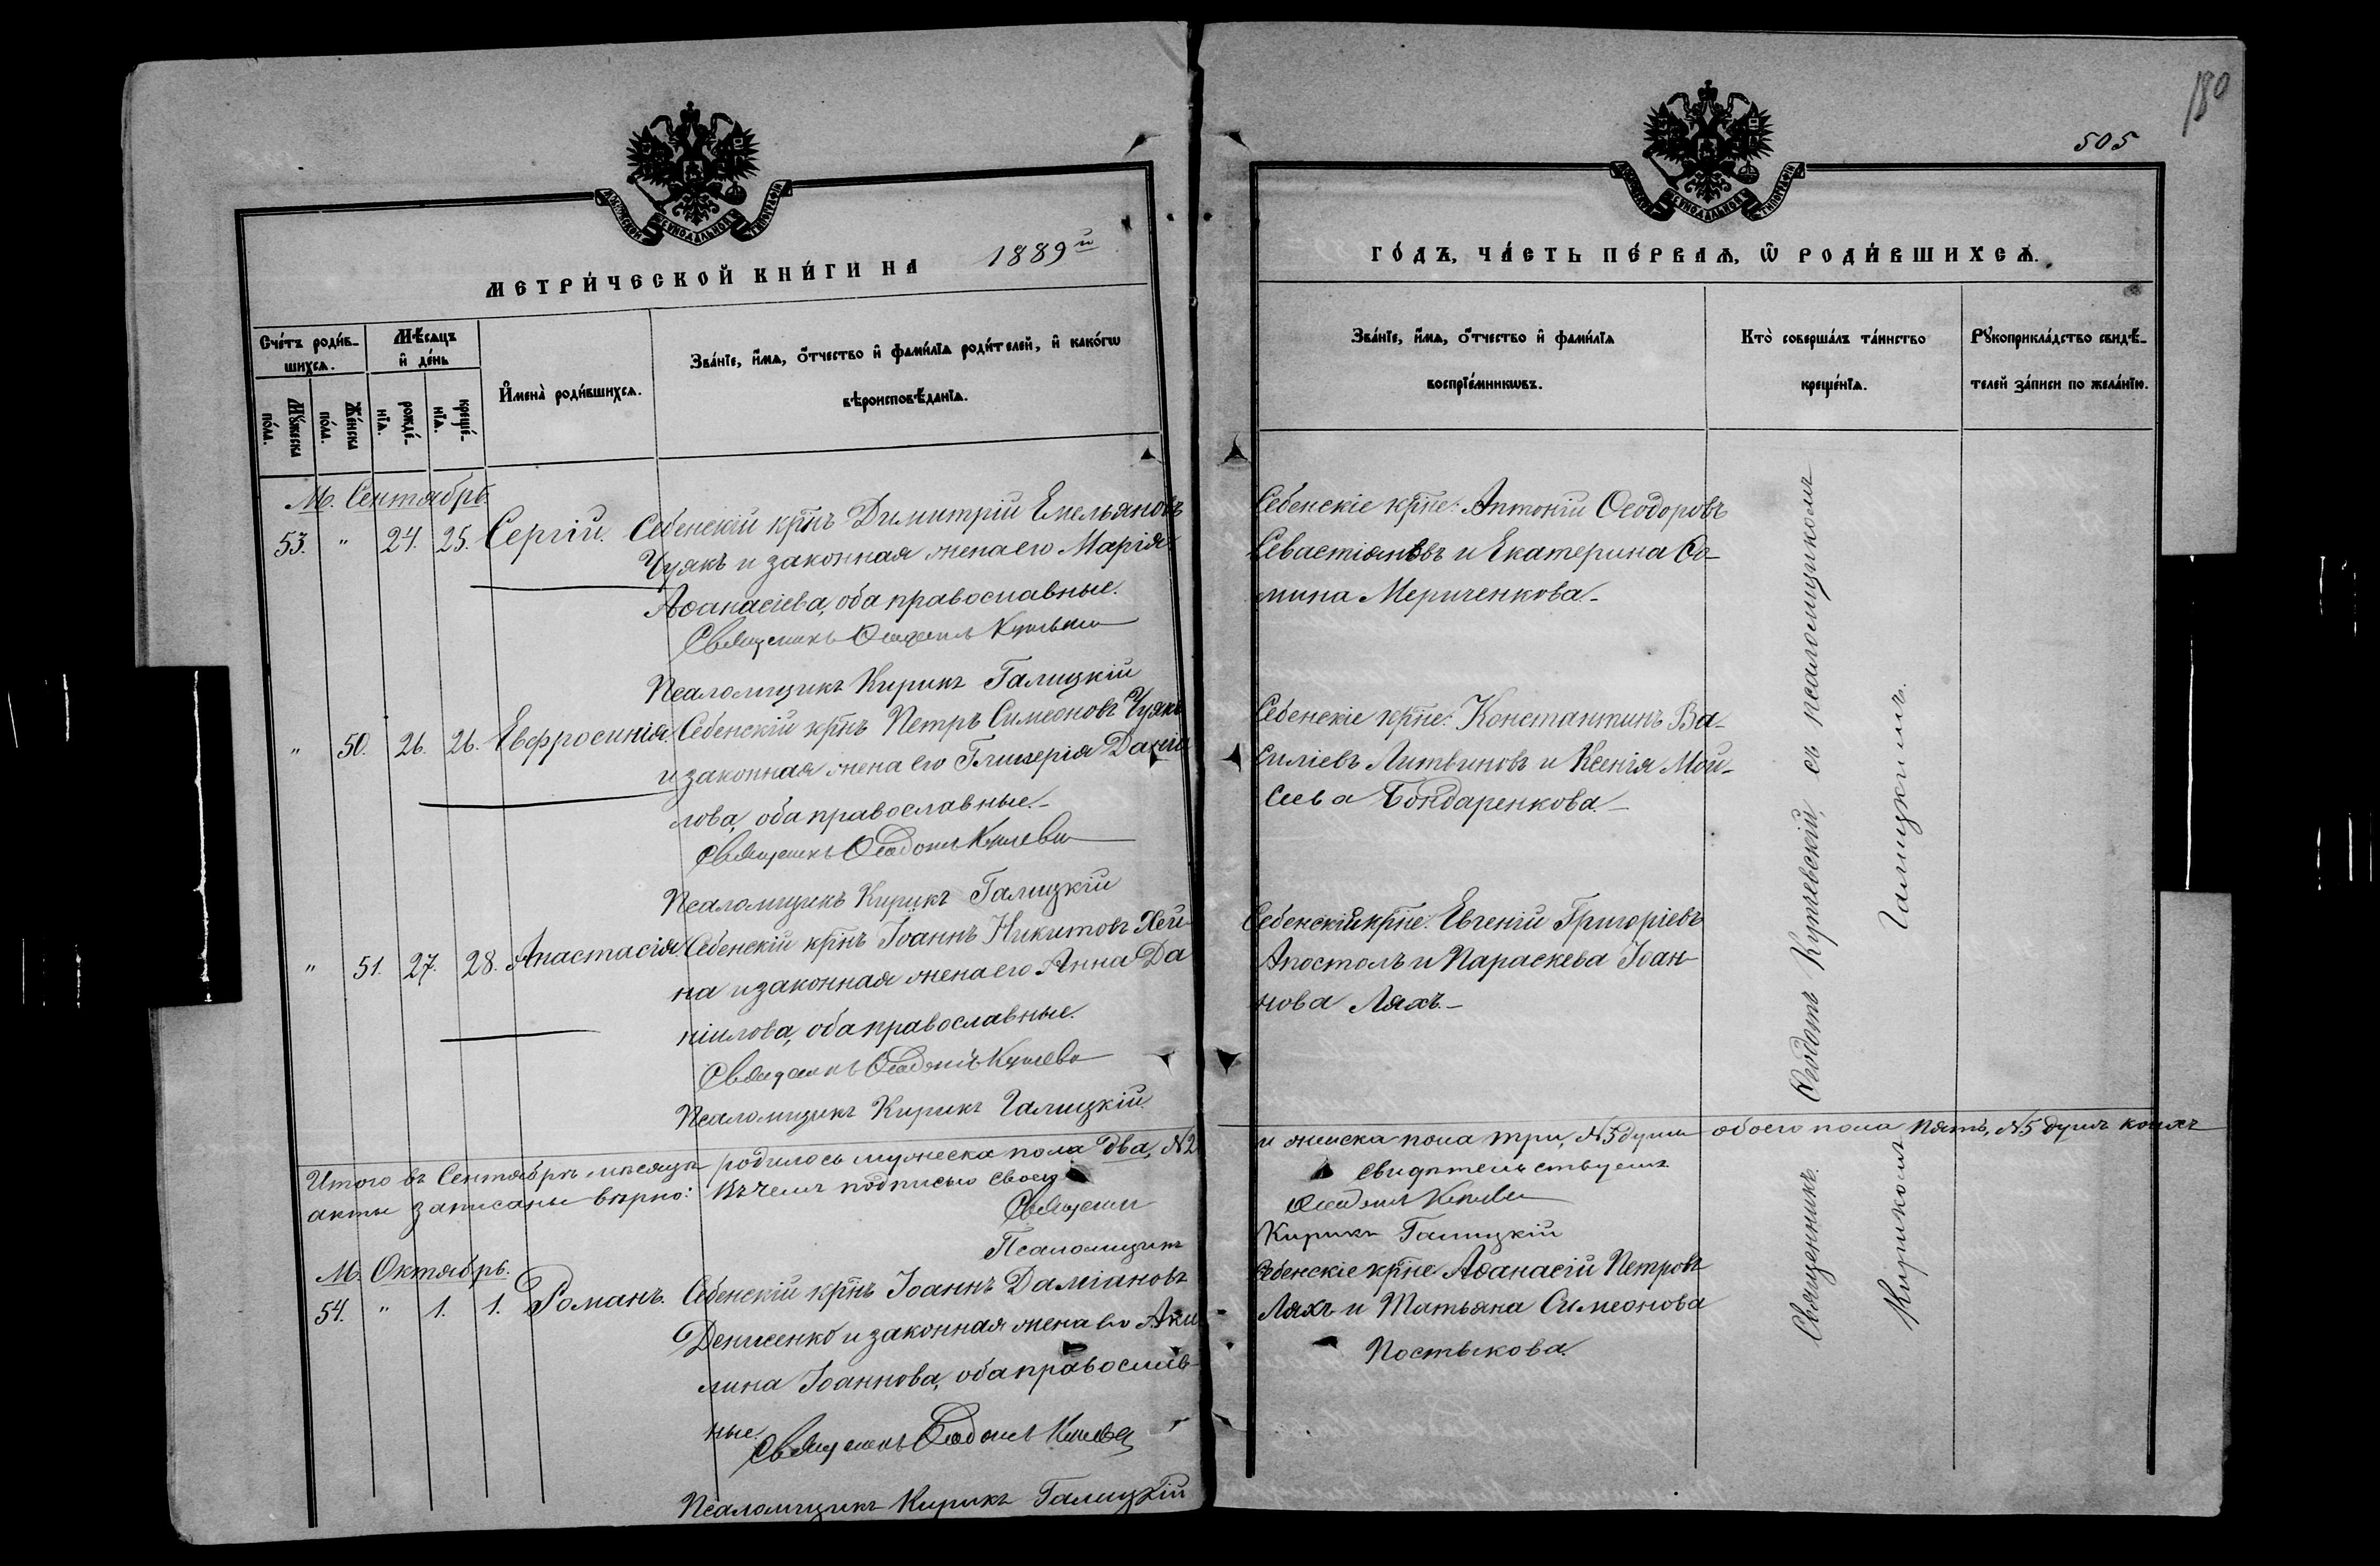 180
505
МЕТРИ́ЧЕСКОЙ КНИ́ГИ НА 1889й
ГО́ДЪ, ЧА́СТЬ ПЕ́РВАѦ, Ѿ РОДИ́ВШИХСѦ.
Сче́тъ роди́в-
шихсѧ.
Мꙋ́жеска по́ла.
Же́нска по́ла.
Мѣ́сѧцъ и҆ де́нь
рожде́-
нїѧ.
креще́-
нїѧ.
И҆мена̀ роди́вшихсѧ.
Зва́нїе, и҆́мѧ, о҆́тчество и҆ фами́лїѧ роди́телей, и҆ како́гѡ
вѣроисповѣ́данїѧ.
Зва́нїе, и҆́мѧ, о҆́тчество и҆ фами́лїѧ
воспрїе́мникѡвъ.
Кто̀ соверша́лъ та́инство
креще́нїѧ.
Рꙋкоприкла́дство свидѣ́-
телей за́писи по жела́нїю.
М. Сентябрь.
53. " 24. 25. Сергій. Себенскій крнъ Димитрій Емельяновъ
Чуякъ и законная жена его Марія
Аѳанасіева, оба православные.
Священникъ
Псаломщикъ Кирикъ Галицкій
Себенскіе крне: Антоній Ѳеодоровъ
Севастіяновъ и Екатерина Ѳо-
мина Мериченкова.
" 50. 26. 26. Евфросинія. Себенскій крнъ Петръ Симеоновъ Чуякъ
и законная жена его Гликерія Даніи
лова, оба православные.
Священникъ
Псаломщикъ Кирикъ Галицкій
Себенскіе крне: Константинъ Ва-
силіевъ Литвиновъ и Ксенія Мои-
сеева Бондаренкова.
" 51. 27. 28. Анастасія. Себенскій крнъ Іоаннъ Никитовъ Хей-
на и законная жена его Анна Да
ніилова, оба православные.
Священникъ
Псаломщикъ Кирикъ Галицкій.
Себенскій крне: Евгеній Григоріевъ
Апостолъ и Параскева Іоан-
нова Ляхъ.
Итого въ Сентябрѣ мѣсяцѣ родилось мужеска пола два, №2 и женска пола три, №3 души обоего пола пять, №5 душъ коихъ
акты записаны вѣрно: въ чемъ подписью своею свидѣтельствуемъ
Священникъ
Псаломщикъ Кирикъ Галицкій
М. Октябрь.
54. " 1. 1. Романъ. Себенскій крнъ Іоаннъ Даміановъ
Денисенко и законная жена его Аки
лина Іоаннова, оба православ-
ные.
Священникъ
Псаломщикъ Кирикъ Галицкій
Себенскіе крне Аѳанасій Петровъ
Ляхъ и Татьяна Симеонова
Постыкова.
Священникъ Ѳеодотъ Купчевскій, съ псаломщикомъ
Кирикомъ Галицкимъ.